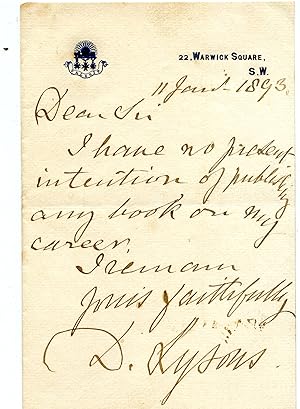 22, WARWICK SQUARE,
S.W.
11 Jany 1893.
Dear Sir
I have no present
intention of publishing
any book on my
career.
I remain
yours faithfully
D. Lysons.